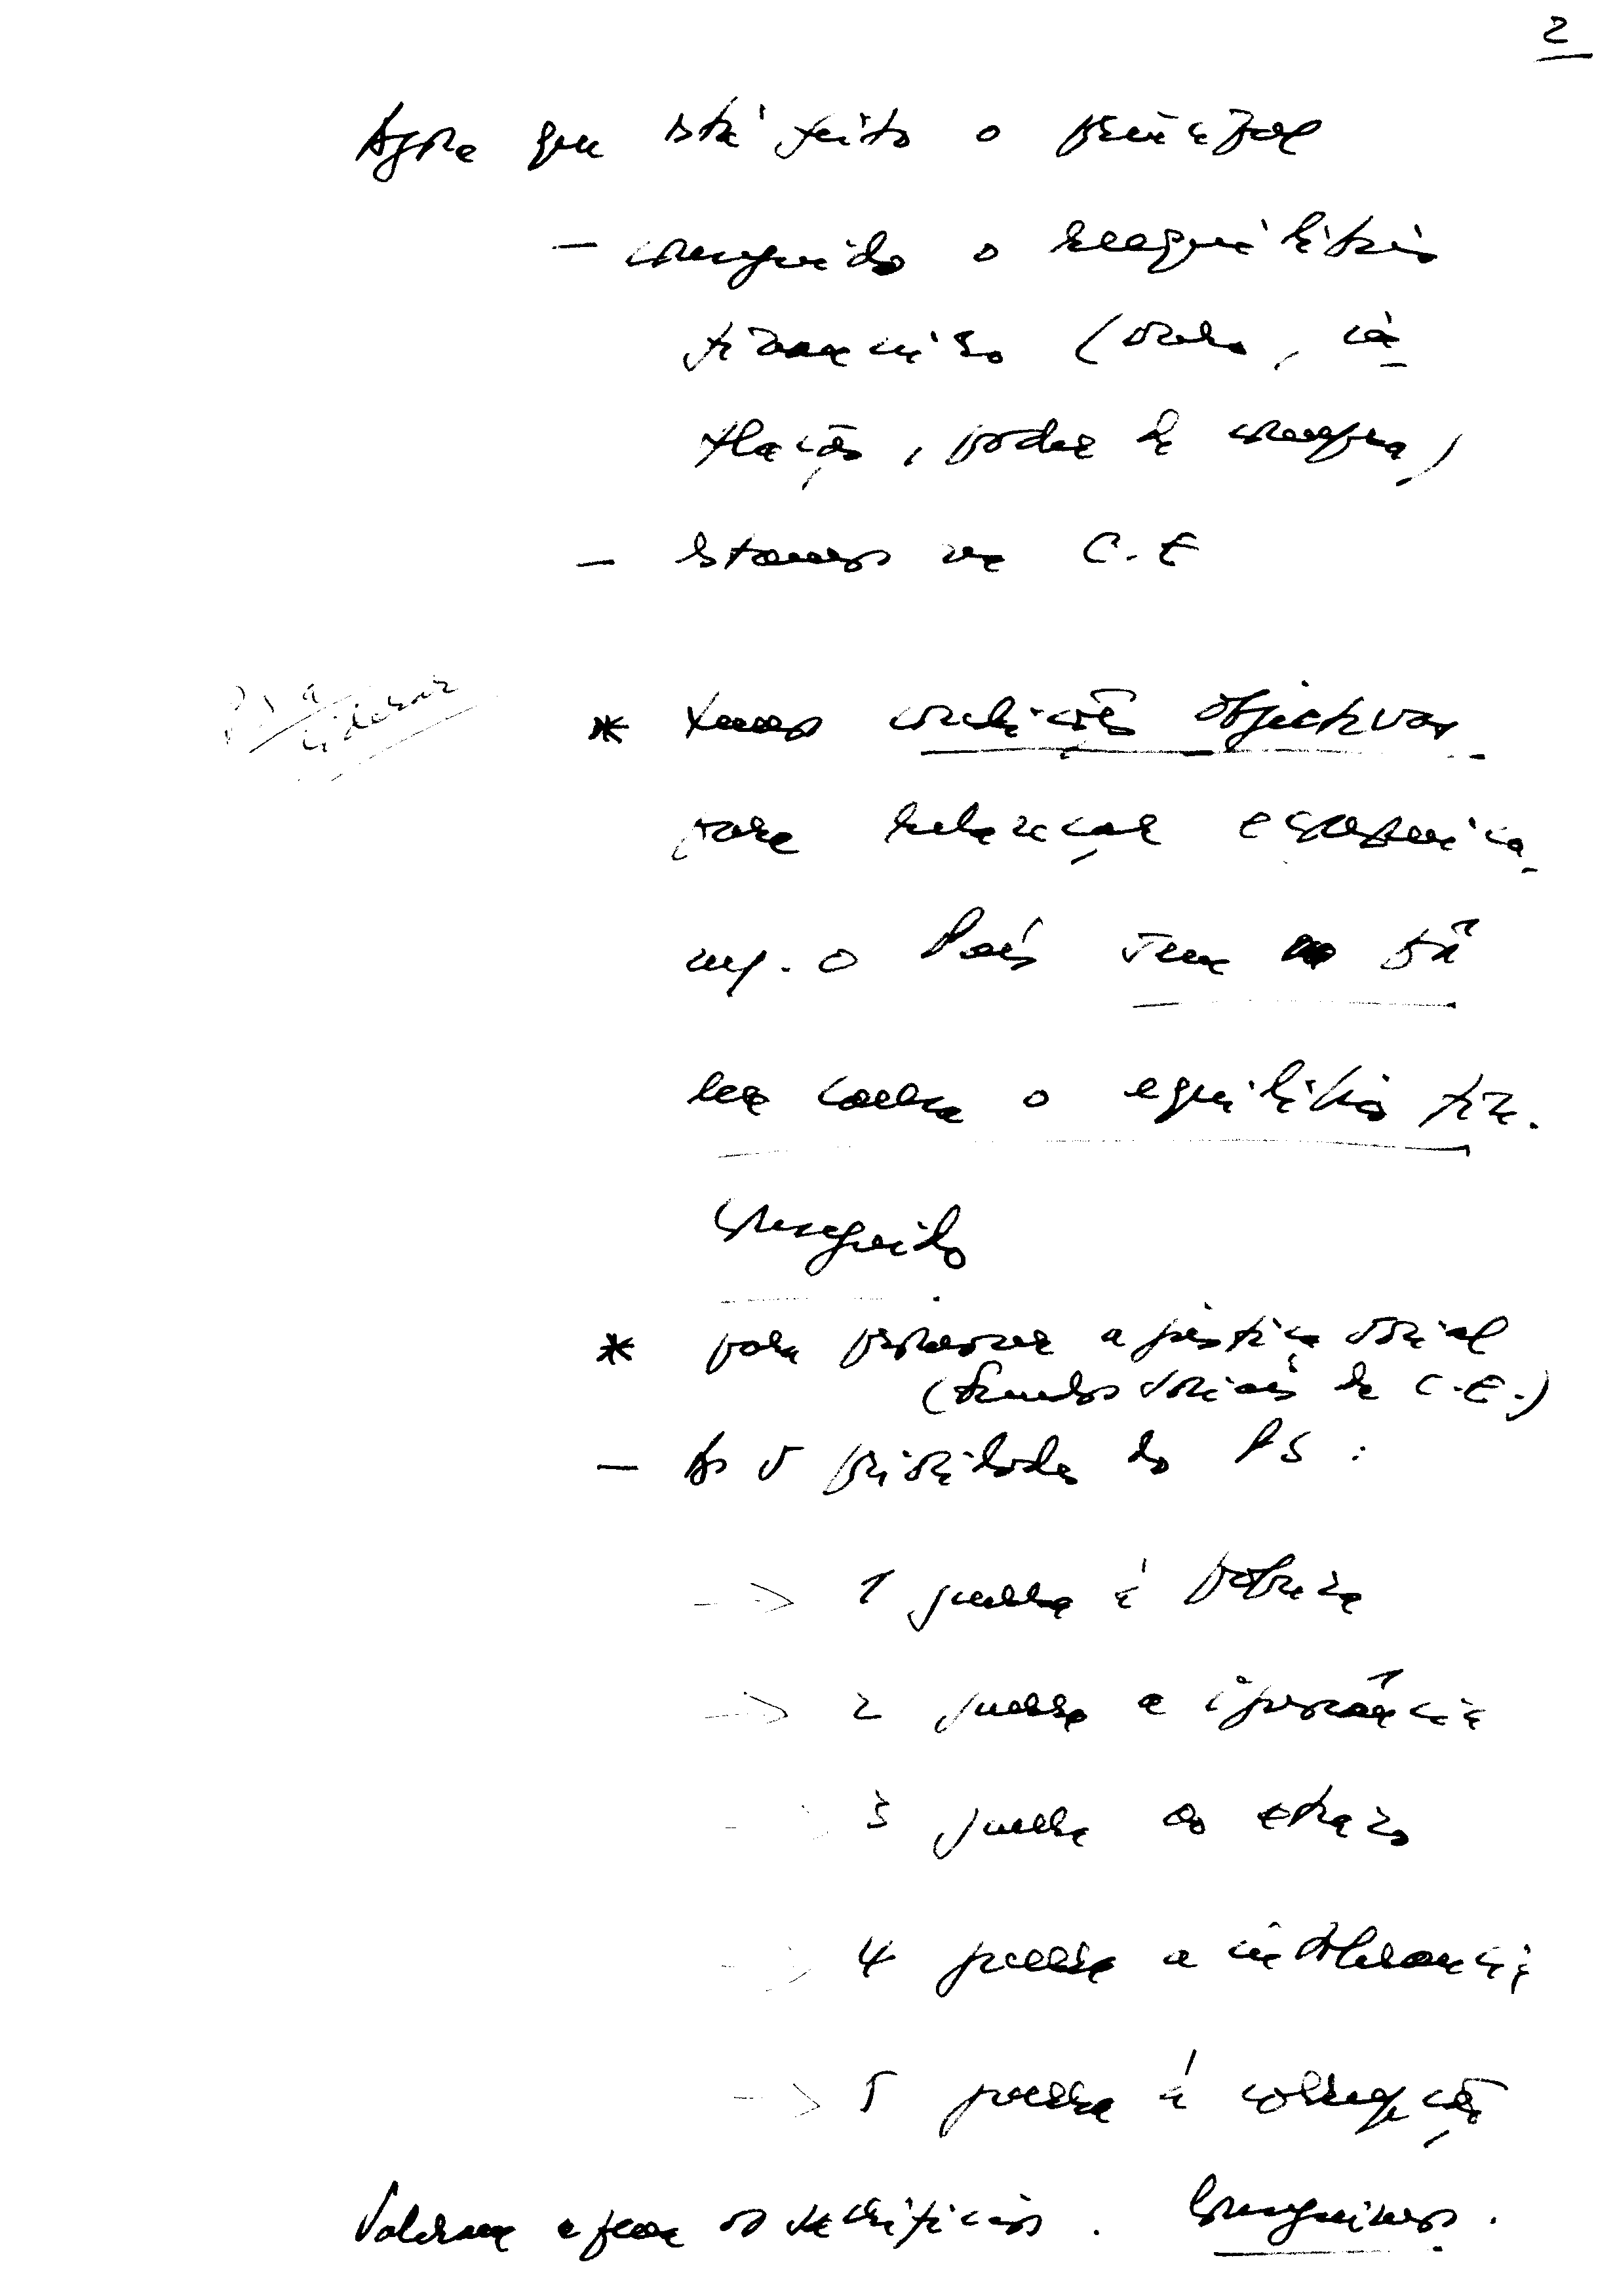 2
Agora que está feito o principal
- conseguido o reequilíbrio
financeiro (       , in-
flação, poder de compra)
- Estamos na C.E
* temos condições objectivas
para relançar economica-
m/. o País sem
o equilíbrio fin.
conseguido
* para promover a justiça social
(fundos sociais da C.E.)
- As 5 prioridades do PS :
-> 1 guerra à pobreza
-> 2 guerra à ignorância
-> 3 guerra ao atrazo
-> 4 guerra à intolerância
-> 5 guerra à corrupção
Valeram a pena os sacrifícios. Conseguimos.